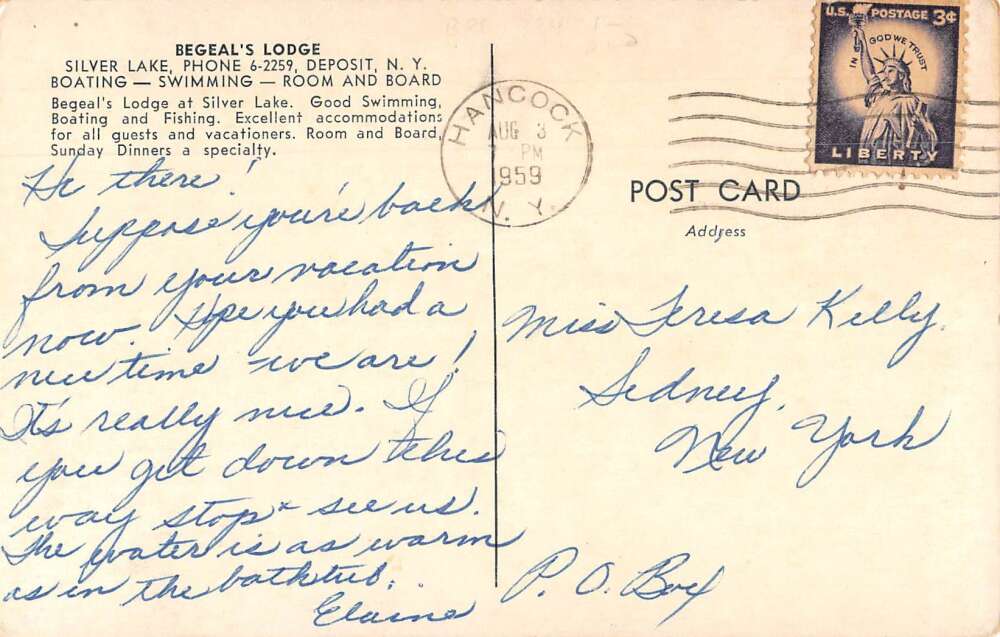 BEGEAL'S LODGE
SILVER LAKE, PHONE 6-2259, DEPOSIT, N. Y.
BOATING — SWIMMING — ROOM AND BOARD
Begeal's Lodge at Silver Lake. Good Swimming,
Boating and Fishing. Excellent accommodations
for all guests and vacationers. Room and Board,
Sunday Dinners a specialty.
Hi there!
Suppose you're back
from your vacation
now. Hope you had a
nice time - we are!
It's really nice. If
you get down this
way stop & see us.
The water is as warm
as in the bathtub.
Elaine
HANCOCK
AUG 3
PM
1959
N. Y.
U.S. POSTAGE 3¢
IN GOD WE TRUST
LIBERTY
POST CARD
Address
Miss Teresa Kelly.
Sidney,
New York
P. O. Box